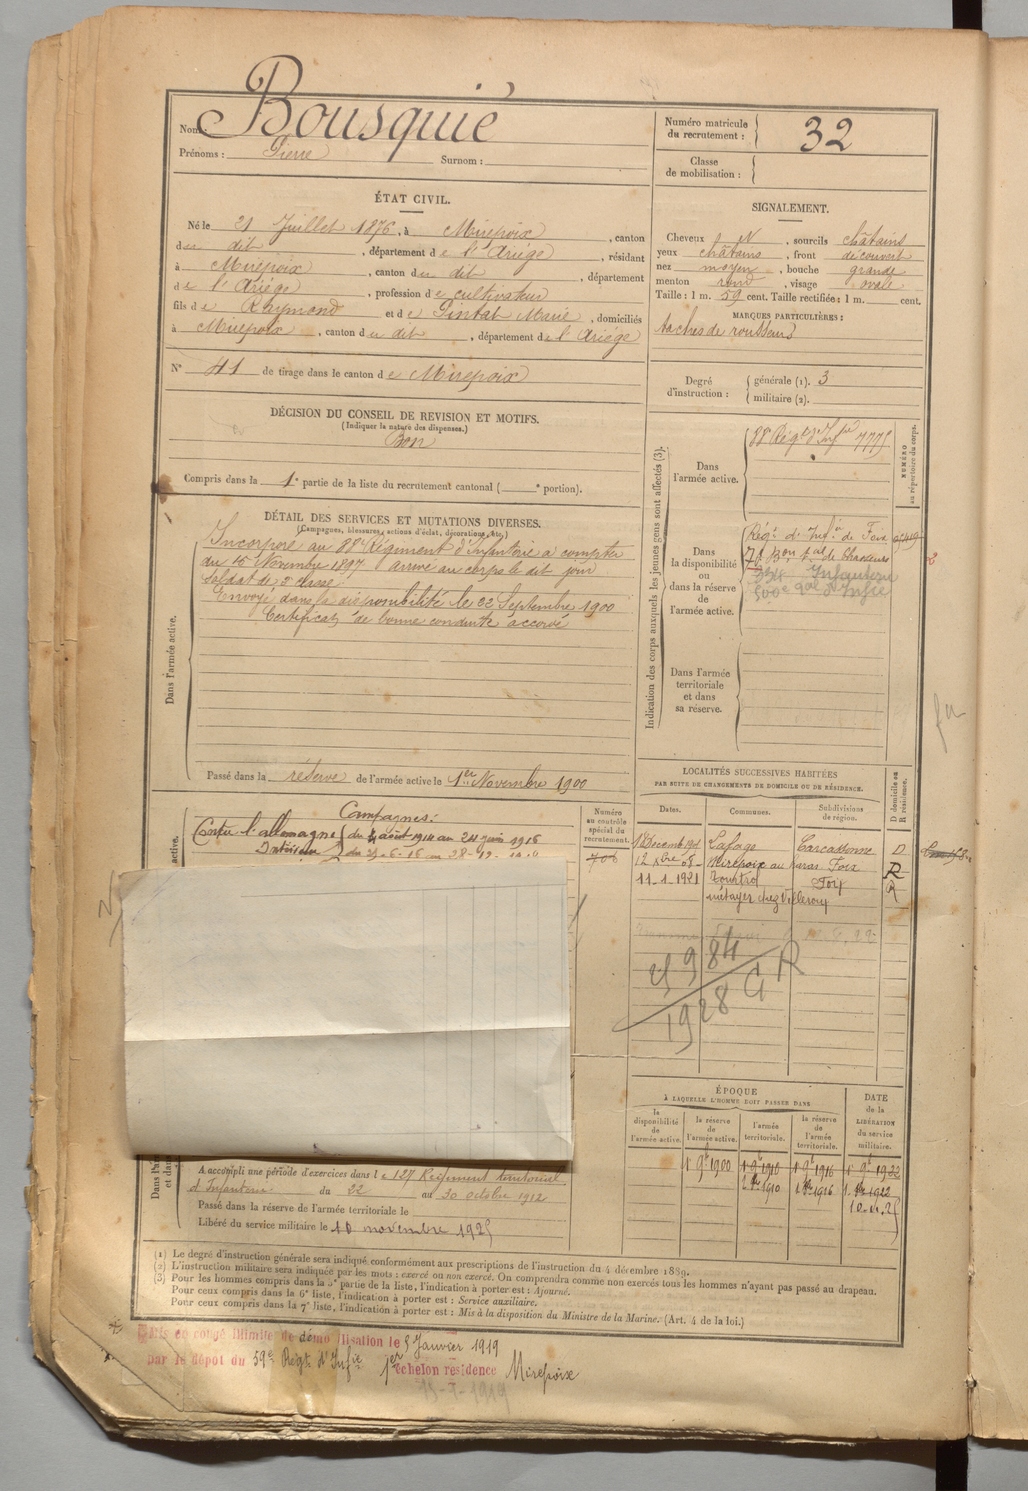 Nom: Bousquié
Prénoms : Pierre Surnom :
Numéro matricule du recrutement : 32
Classe de mobilisation :
ÉTAT CIVIL.
Né le 21 Juillet 1876, à Mirepoix, canton
du dit, département de l'Ariége, résidant
à Mirepoix, canton du dit, département
de l'Ariége, profession de cultivateur
fils de Raymond et de Pintat Marie, domiciliés
à Mirepoix, canton du dit, département de l'Ariége
N° 41 de tirage dans le canton de Mirepoix
SIGNALEMENT.
Cheveux N, sourcils châtains
yeux châtains, front découvert
nez moyen, bouche grande
menton rond, visage ovale
Taille : 1 m. 59 cent. Taille rectifiée : 1 m. cent.
MARQUES PARTICULIÈRES :
taches de rousseur
Degré d'instruction : générale (1). 3
militaire (2).
DÉCISION DU CONSEIL DE REVISION ET MOTIFS.
(Indiquer la nature des dispenses.)
Bon
Compris dans la 1e partie de la liste du recrutement cantonal ( e portion).
DÉTAIL DES SERVICES ET MUTATIONS DIVERSES.
(Campagnes, blessures, actions d'éclat, décorations, etc.)
Dans l'armée active.
Incorporé au 88e Régiment d'Infanterie à compter
du 15 Novembre 1897 arrivé au corps le dit jour
soldat de 2e classe
Envoyé dans la disponibilité le 22 Septembre 1900
Certificat de bonne conduite accordé
Passé dans la réserve de l'armée active le 1er Novembre 1900
Indication des corps auxquels les jeunes gens sont affectés (3).
NUMÉRO au répertoire du corps.
Dans l'armée active.
88e Régt d'Infie 7775
Dans la disponibilité ou dans la réserve de l'armée active.
Régt d'Infie de Foix
Bon de Chasseurs
Infanterie
Dans l'armée territoriale et dans sa réserve.
LOCALITÉS SUCCESSIVES HABITÉES
PAR SUITE DE CHANGEMENTS DE DOMICILE OU DE RÉSIDENCE.
D domicile ou R résidence.
Dates. Communes. Subdivisions de région.
Lafage Carcassonne D
12 Xbre 08 Mirepoix au haras Foix R
11-1-1921 Tourtrol Foix R
métayer chez Villeroy
25984
1928 GR
Campagnes :
Contre l'allemagne du 4 août 1914 au 24 juin 1916
Intérieur
Numéro au contrôle spécial du recrutement.
706
ÉPOQUE
À LAQUELLE L'HOMME DOIT PASSER DANS
la disponibilité de l'armée active.
la réserve de l'armée active.
l'armée territoriale.
la réserve de l'armée territoriale.
DATE de la LIBÉRATION du service militaire.
1er 9bre 1900 1er 9bre 1910 1er 9bre 1916 1er 9bre 1922
A accompli une période d'exercices dans le 127 Régiment territorial
d'Infanterie du 22 au 30 octobre 1912
Passé dans la réserve de l'armée territoriale le
Libéré du service militaire le 10 novembre 1925
(1) Le degré d'instruction générale sera indiqué conformément aux prescriptions de l'instruction du 4 décembre 1889.
(2) L'instruction militaire sera indiquée par les mots : exercé ou non exercé. On comprendra comme non exercés tous les hommes n'ayant pas passé au drapeau.
(3) Pour les hommes compris dans la 5e partie de la liste, l'indication à porter est : Ajourné.
Pour ceux compris dans la 6e liste, l'indication à porter est : Service auxiliaire.
Pour ceux compris dans la 7e liste, l'indication à porter est : Mis à la disposition du Ministre de la Marine. (Art. 4 de la loi.)
Mis en congé illimité de démobilisation le 5 Janvier 1919
par le dépôt du 59e Régt d'Infie 1er échelon résidence Mirepoix